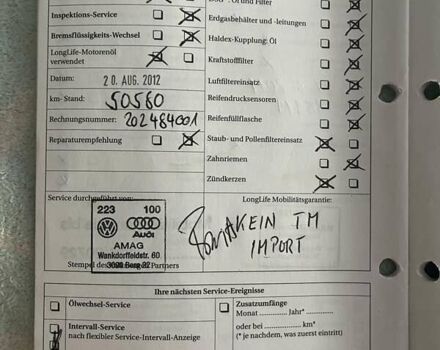 Öl und Filter
Inspektions-Service
Erdgasbehälter und -leitungen
Bremsflüssigkeits-Wechsel
Haldex-Kupplung: Öl
LongLife-Motorenöl
verwendet
Kraftstofffilter
Datum: 20. AUG. 2012
Luftfiltereinsatz
km-Stand: 50560
Reifendrucksensoren
Rechnungsnummer: 202484001
Reifenfüllflasche
Reparaturempfehlung
Staub- und Pollenfiltereinsatz
Zahnriemen
Zündkerzen
Service durchgeführt von:
LongLife Mobilitätsgarantie:
223 100
Audi
AMAG
Wankdorffeldstr. 60
3000 Bern 22
KEIN TM
IMPORT
Stempel des Partners
Ihre nächsten Service-Ereignisse
Ölwechsel-Service
Zusatzumfänge
Monat Jahr*
Intervall-Service
nach flexibler Service-Intervall-Anzeige
oder bei km*
(* je nachdem, was zuerst eintritt)